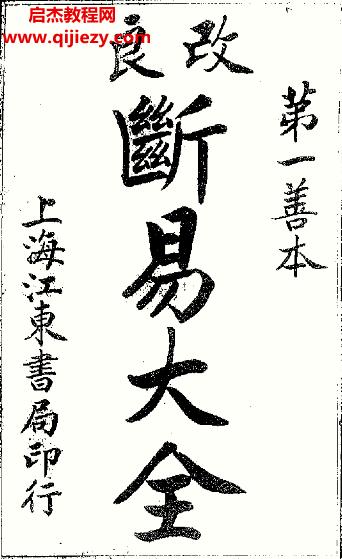 启杰教程网
www.qijiezy.com
改良
第一善本
斷易大全
上海江東書局印行